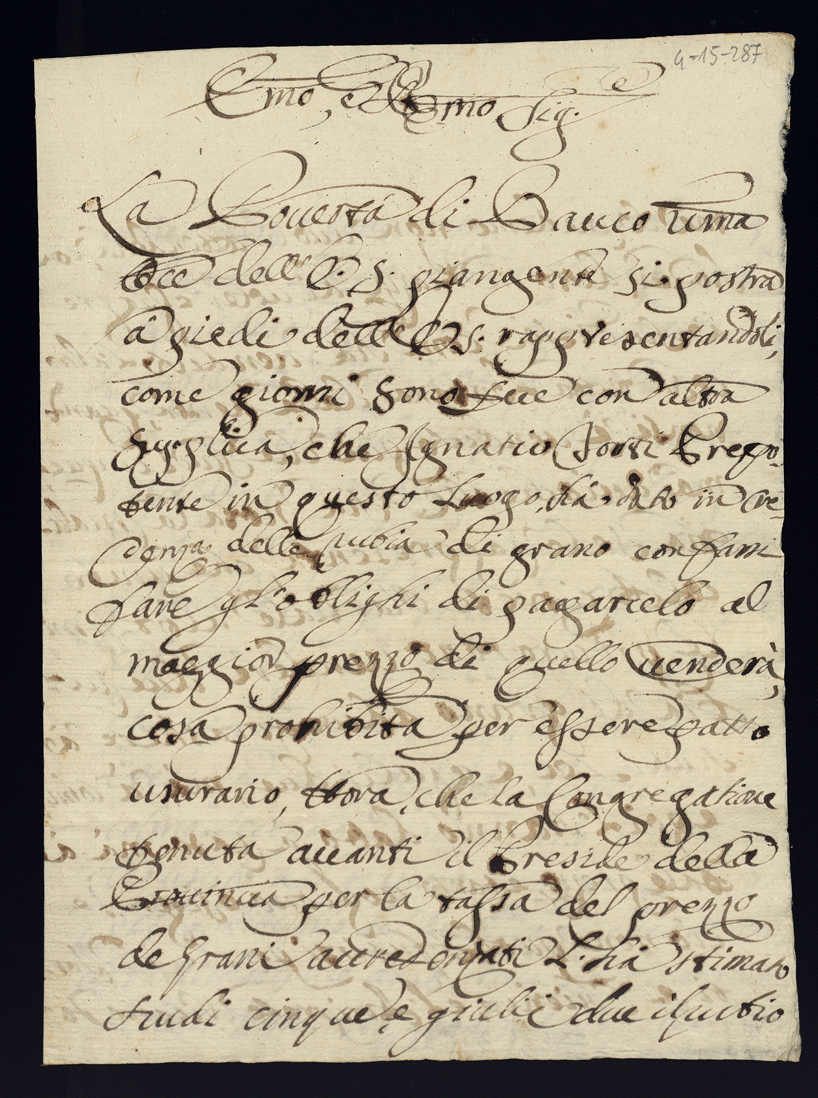 4-15-287
Emo, e Rmo Sig.re
La Povertà di Bauco uma
tce dell'E. S. piangente si postra
à piedi dell'E. S. rappresentandoli,
come giorni sono fece con altra
supplica, che Ignatio Prepo-
tente in questo Luogo, hà dato in cre-
denza delle rubia di grano con farsi
fare gl'oblighi di pagarcelo al
maggior prezzo di quello venderà,
cosa prohibita per essere patto
usurario, ttora, che la Congregatione
tenuta avanti il Preside della
Provincia per la tassa del prezzo
de grani accredenzati L'hà stimato
scudi cinque, e giulii due il rubio